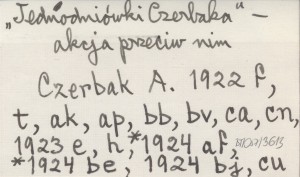 „Jednodniówki Czerbaka“ –
akcja przeciw nim
Czerbak A. 1922 f,
t, ak, ap, bb, bv, ca, cn,
1923 e, h, *1924 af,
*1924 be, 1924 bj, cu